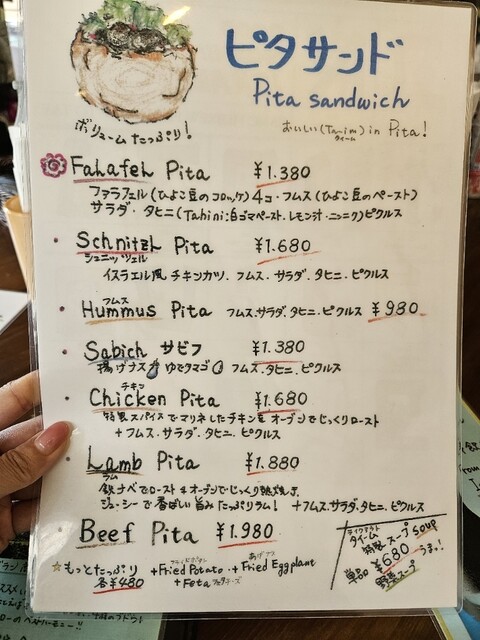 ピタサンド
Pita sandwich
ボリュームたっぷり!
おいしい(Taim)in Pita!
タイーム
Falafel Pita ¥1.380
ファラフェル(ひよこ豆のコロッケ)4コ・フムス(ひよこ豆のペースト)
サラダ・タヒニ(Tahini:白ゴマペースト.レモン汁・ニンニク)ピクルス
Schnitzel Pita ¥1.680
シュニッツェル
イスラエル風 チキンカツ. フムス. サラダ. タヒニ. ピクルス
フムス
Hummus Pita フムス.サラダ.タヒニ.ピクルス ¥980
Sabich サビフ ¥1.380
揚げナス ゆでタマゴ フムス.タヒニ.ピクルス
チキン
Chicken Pita ¥1.680
特製スパイスでマリネしたチキンを オーブンでじっくりロースト
+フムス.サラダ.タヒニ.ピクルス
Lamb Pita ¥1.880
ラム
鉄ナベでロースト & オーブンでじっくり
ジューシーで香ばしい旨みたっぷりラム! +フムス.サラダ.タヒニ.ピクルス
Beef Pita ¥1.980
☆もっとたっぷり
各¥480
+Fried Potato
・+Fried Eggplant
+Feta チーズ
テイクアウト
タイーム
特製スープ soup
¥680 うまっ!
単品 野菜スープ